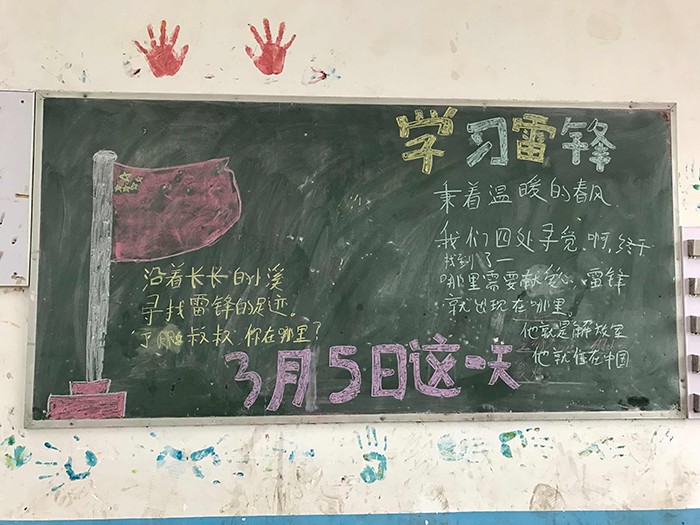 学习雷锋
乘着温暖的春风
我们四处寻觅，啊，终于
找到了一
哪里需要献爱心，雷锋
就出现在哪里。
他就是解放军
他就住在中国
沿着长长的小溪
寻找雷锋的足迹。
叔叔，你在哪里？
3月5日这一天